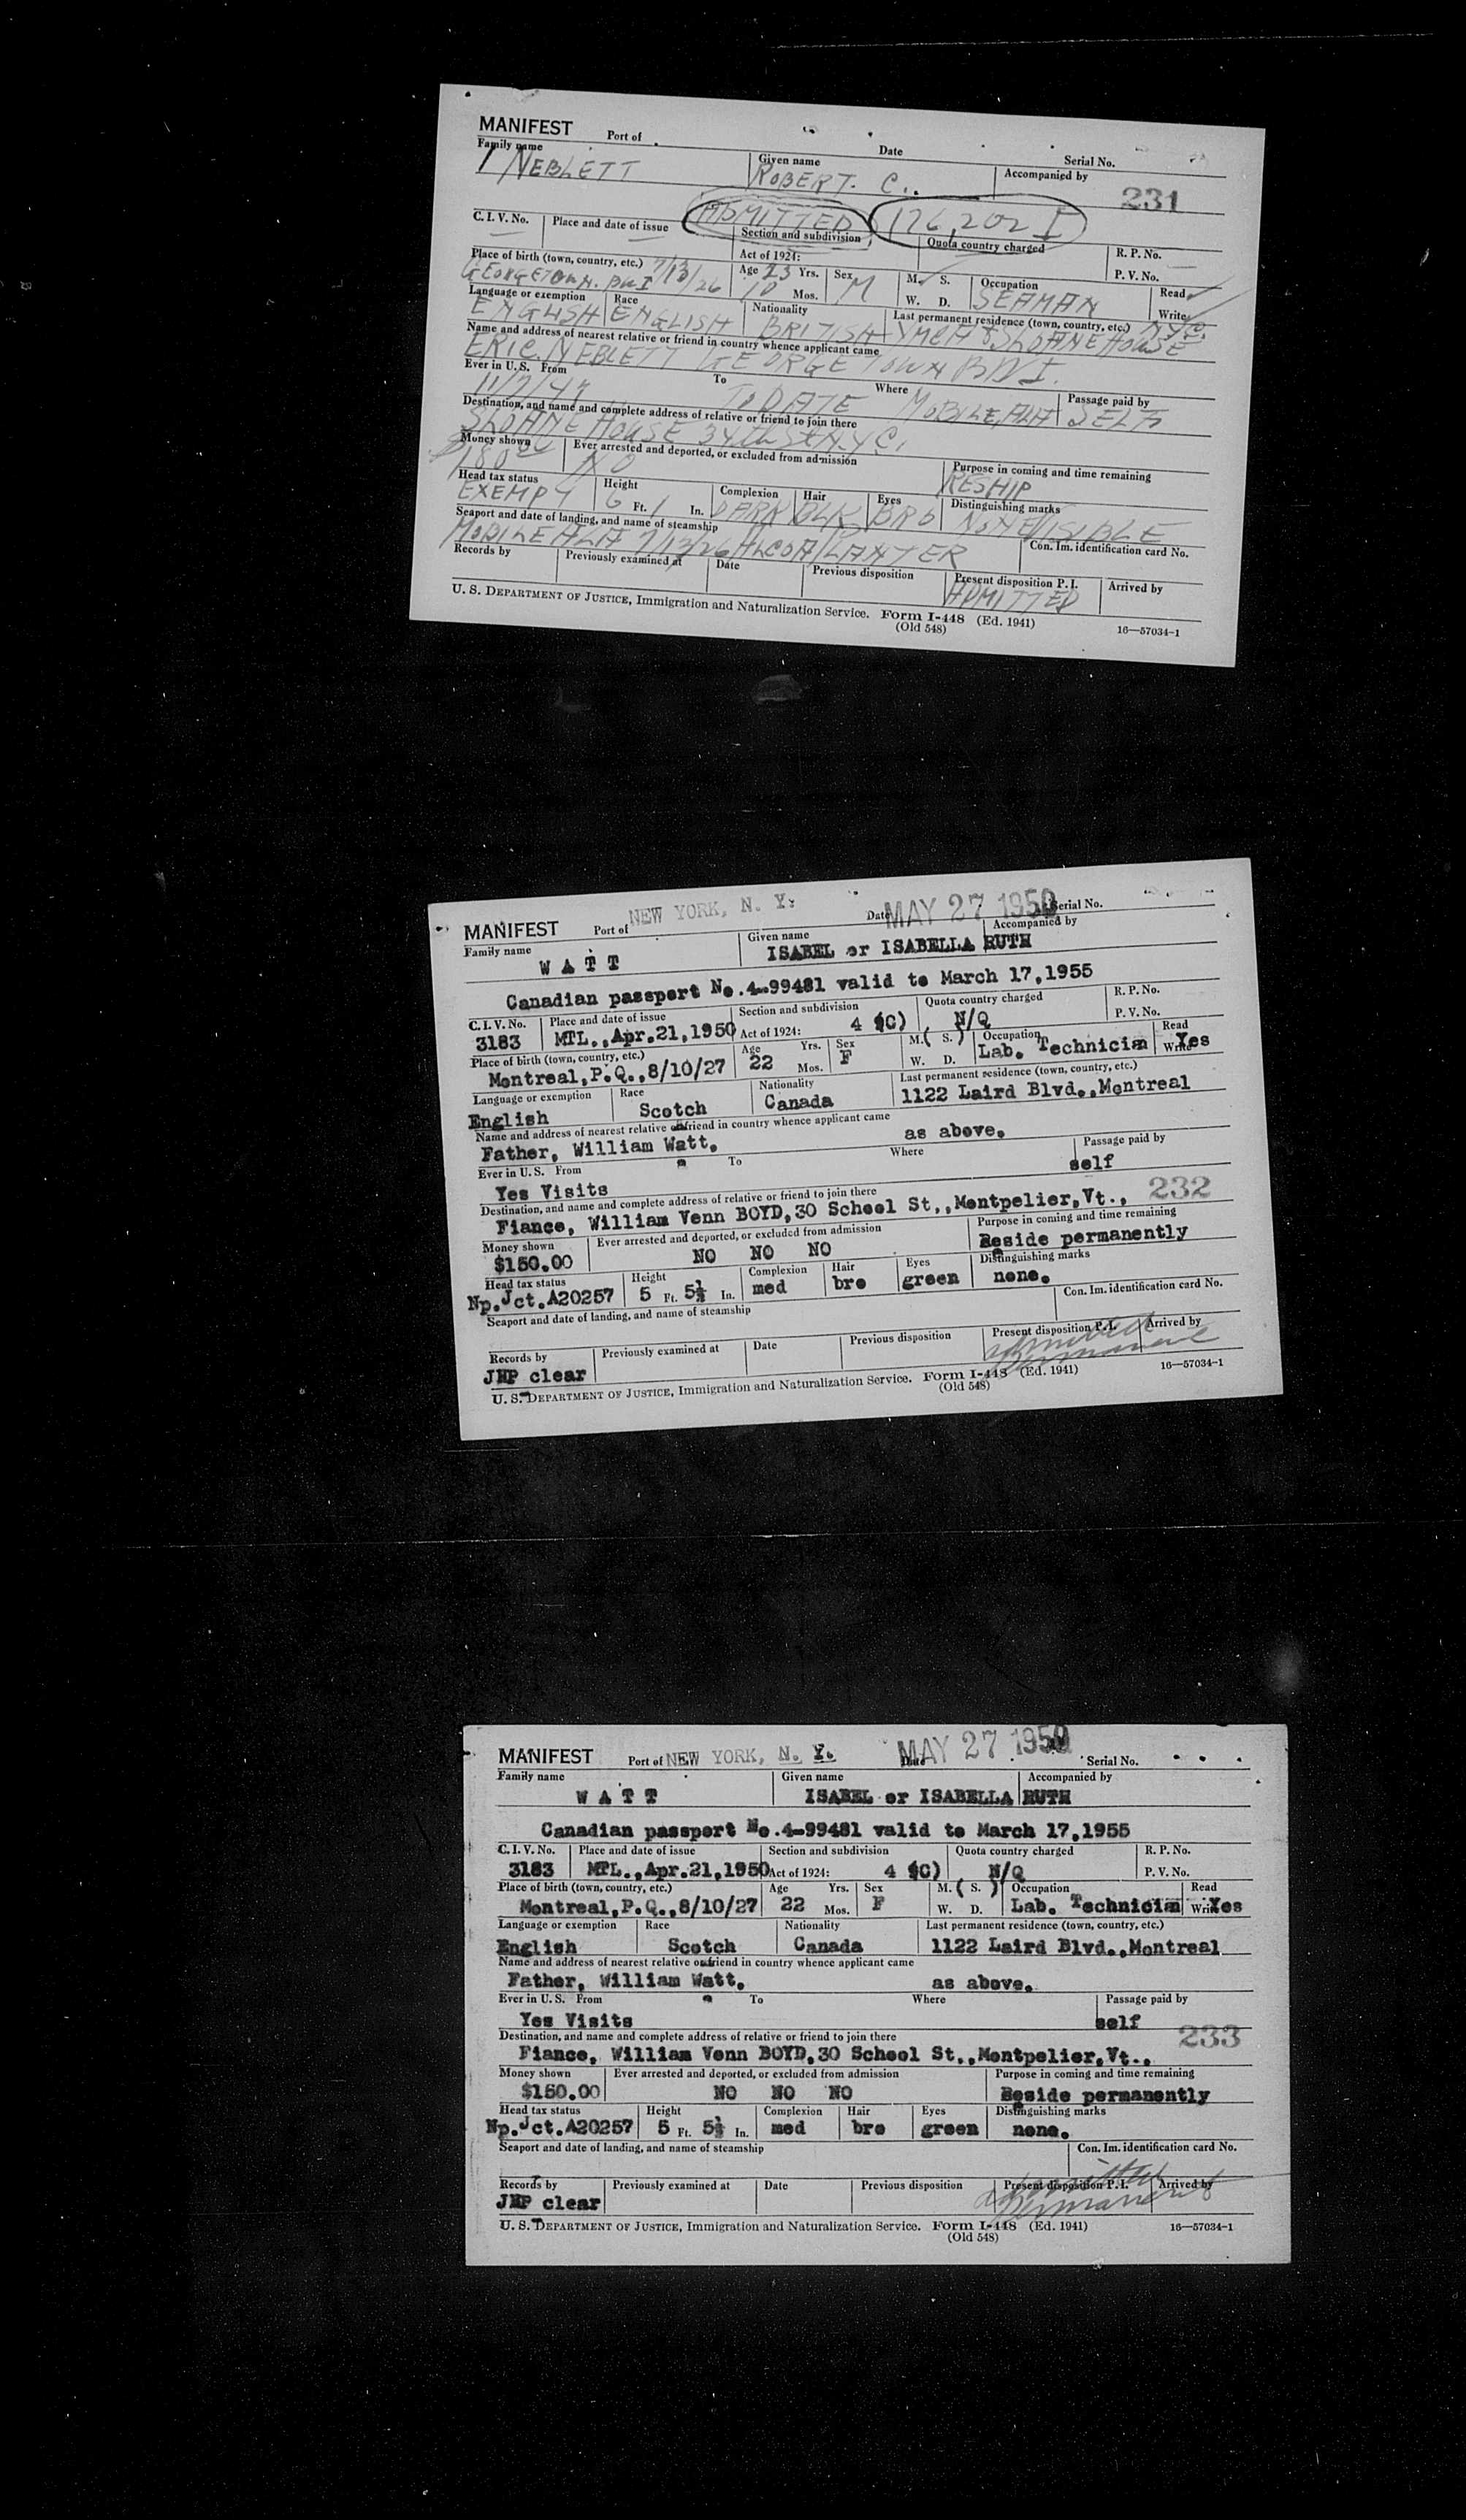 MANIFEST Port of Date Serial No.
Family name Given name Accompanied by
NEBLETT ROBERT. C. 231
ADMITTED 176,202 I
C. I. V. No. Place and date of issue Section and subdivision Quota country charged R. P. No.
Act of 1924: P. V. No.
Place of birth (town, country, etc.) Age 23 Yrs. Sex M. S. Occupation Read
GEORGETOWN. BWI 7/13/26 10 Mos. M W. D. SEAMAN Write
Language or exemption Race Nationality Last permanent residence (town, country, etc.) NYC.
ENGLISH ENGLISH BRITISH YMCA SLOANE HOUSE
Name and address of nearest relative or friend in country whence applicant came
ERIC. NEBLETT GEORGETOWN
Ever in U. S. From To Where Passage paid by
11/7/47 TO DATE MOBILE, ALA SELF
Destination, and name and complete address of relative or friend to join there
SLOANE HOUSE 34th St N.Y.C.
Money shown Ever arrested and deported, or excluded from admission Purpose in coming and time remaining
180 00 NO RESHIP
Head tax status Height Complexion Hair Eyes Distinguishing marks
EXEMPT 6 Ft. 1 In. DARK BLK BRO NONE VISIBLE
Seaport and date of landing, and name of steamship Con. Im. identification card No.
MOBILE ALA 7/13/26 ALCOA
Records by Previously examined at Date Previous disposition Present disposition P. I. Arrived by
ADMITTED
U. S. DEPARTMENT OF JUSTICE, Immigration and Naturalization Service. Form I-448 (Ed. 1941) 16—57034-1
(Old 548)
MANIFEST Port of NEW YORK, N. Y. Date MAY 27 1950 Serial No.
Family name Given name Accompanied by
W A T T ISABEL or ISABELLA RUTH
Canadian passport No.4-99481 valid to March 17,1955
C. I. V. No. Place and date of issue Section and subdivision Quota country charged R. P. No.
3183 MTL.,Apr.21,1950 Act of 1924: 4 (C) N/Q P. V. No.
Place of birth (town, country, etc.) Age Yrs. Sex M. ( S. ) Occupation Read
Montreal,P.Q.,8/10/27 22 Mos. F W. D. Lab. Technician Write Yes
Language or exemption Race Nationality Last permanent residence (town, country, etc.)
English Scotch Canada 1122 Laird Blvd.,Montreal
Name and address of nearest relative or friend in country whence applicant came
Father, William Watt. as above.
Ever in U. S. From To Where Passage paid by
Yes Visits self
Destination, and name and complete address of relative or friend to join there 232
Fiance, William Venn BOYD,30 School St.,Montpelier,Vt.,
Money shown Ever arrested and deported, or excluded from admission Purpose in coming and time remaining
$150.00 NO NO NO Reside permanently
Head tax status Height Complexion Hair Eyes Distinguishing marks
Np.Jct.A20257 5 Ft. 5½ In. med bro green none.
Seaport and date of landing, and name of steamship Con. Im. identification card No.
Records by Previously examined at Date Previous disposition Present disposition P. I. Arrived by
JHP clear admitted permanent
U. S. DEPARTMENT OF JUSTICE, Immigration and Naturalization Service. Form I-448 (Ed. 1941) 16—57034-1
(Old 548)
MANIFEST Port of NEW YORK, N. Y. Date MAY 27 1950 Serial No.
Family name Given name Accompanied by
W A T T ISABEL or ISABELLA RUTH
Canadian passport No.4-99481 valid to March 17,1955
C. I. V. No. Place and date of issue Section and subdivision Quota country charged R. P. No.
3183 MTL.,Apr.21,1950 Act of 1924: 4 (C) N/Q P. V. No.
Place of birth (town, country, etc.) Age Yrs. Sex M. ( S. ) Occupation Read
Montreal,P.Q.,8/10/27 22 Mos. F W. D. Lab. Technician Write Yes
Language or exemption Race Nationality Last permanent residence (town, country, etc.)
English Scotch Canada 1122 Laird Blvd.,Montreal
Name and address of nearest relative or friend in country whence applicant came
Father, William Watt. as above.
Ever in U. S. From To Where Passage paid by
Yes Visits self
Destination, and name and complete address of relative or friend to join there 233
Fiance, William Venn BOYD,30 School St.,Montpelier,Vt.,
Money shown Ever arrested and deported, or excluded from admission Purpose in coming and time remaining
$150.00 NO NO NO Reside permanently
Head tax status Height Complexion Hair Eyes Distinguishing marks
Np.Jct.A20257 5 Ft. 5½ In. med bro green none.
Seaport and date of landing, and name of steamship Con. Im. identification card No.
Records by Previously examined at Date Previous disposition Present disposition P. I. Arrived by
JHP clear admitted permanent
U. S. DEPARTMENT OF JUSTICE, Immigration and Naturalization Service. Form I-448 (Ed. 1941) 16—57034-1
(Old 548)